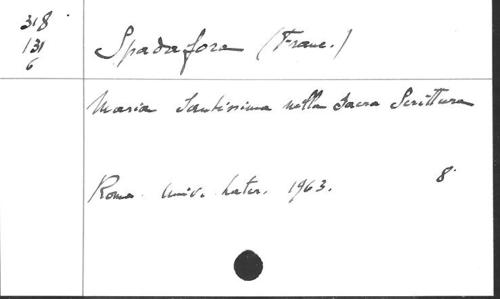 318
131
6
Spadafora (Franc.)
Maria Santissima nella Sacra Scrittura
Roma. Univ. Later. 1963. 8°